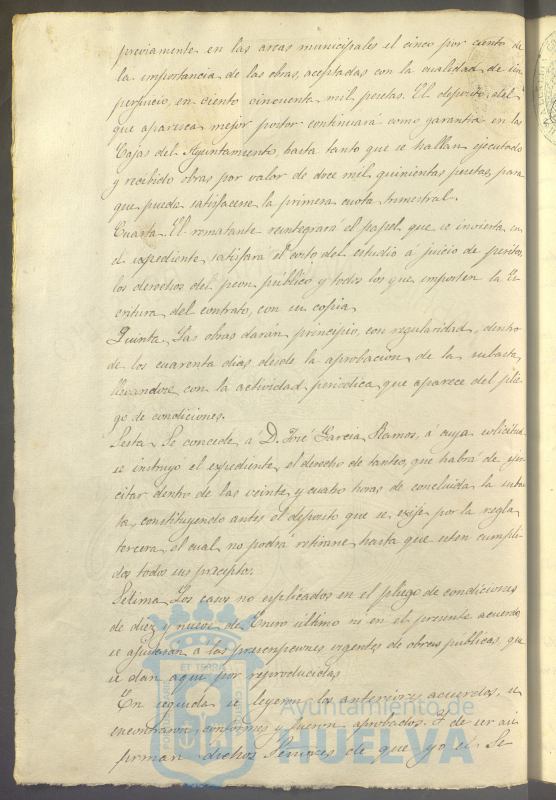 previamente en las arcas municipales el cinco por ciento de
la importancia de las obras, aceptadas con la cualidad de sin
perjuicio, en ciento cincuenta mil pesetas. El deposito del
que aparezca mejor postor continuará como garantia en las
Cajas del Ayuntamiento, hasta tanto que se hallan ejecutado
y recibido obras por valor de doce mil quinientas pesetas, para
que pueda satisfacerse la primera cuota trimestral.
Cuarta. El rematante reintegrará el papel que se invierta en
el expediente, satisfará el costo del estudio á juicio de peritos,
los derechos del peon público y todos los que importen la Es
critura del contrato, con su copia.
Quinta. Las obras darán principio, con regularidad, dentro
de los cuarenta dias desde la aprobacion de la subasta,
llevandose con la actividad periodica que aparece del plie
go de condiciones.
Sesta. Se concede á D. José Garcia Ramos, á cuya solicitud
se instruyó el expediente, el derecho de tanteo, que habrá de ejer
citar dentro de las veinte y cuatro horas de concluida la subas
ta, constituyendo antes el deposito que se exije por la regla
tercera, el cual no podrá retirarse hasta que esten cumpli
dos todos sus preceptos.
Setima. Los casos no esplicados en el pliego de condiciones
de diez y nueve de Enero último ni en el presente acuerdo
se ajustarán á las prescripciones vigentes de obras publicas, que
se dan aqui por reproducidas.
En seguida se leyeron los anteriores acuerdos, se
encontraron conformes y fueron aprobados. Y de ser asi
firman dichos Señores de que yo el Se
ET TERRA
Ayuntamiento de
HUELVA